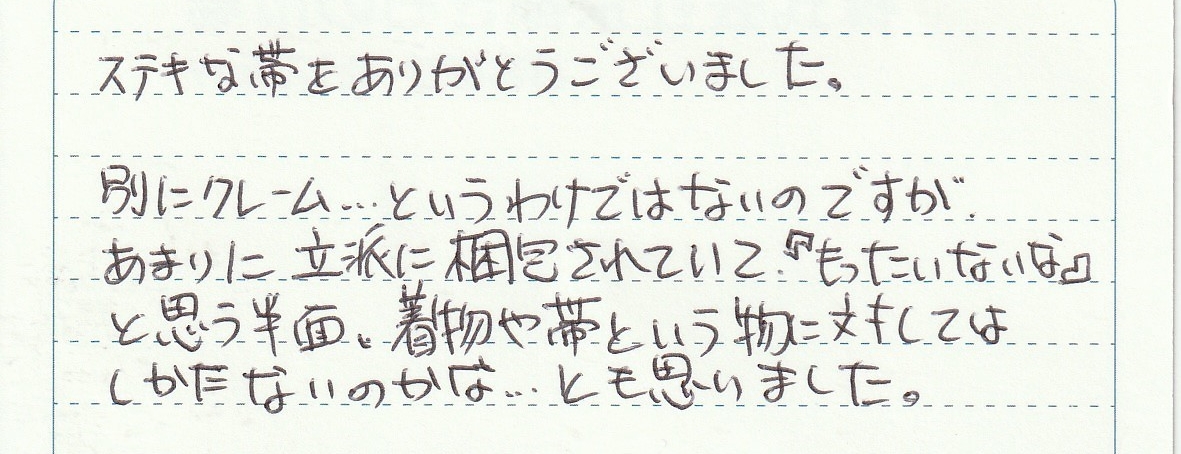 ステキな帯をありがとうございました。
別にクレーム…というわけではないのですが、
あまりに立派に梱包されていて、『もったいないな』
と思う半面、着物や帯という物に対しては
しかたないのかな…とも思いました。